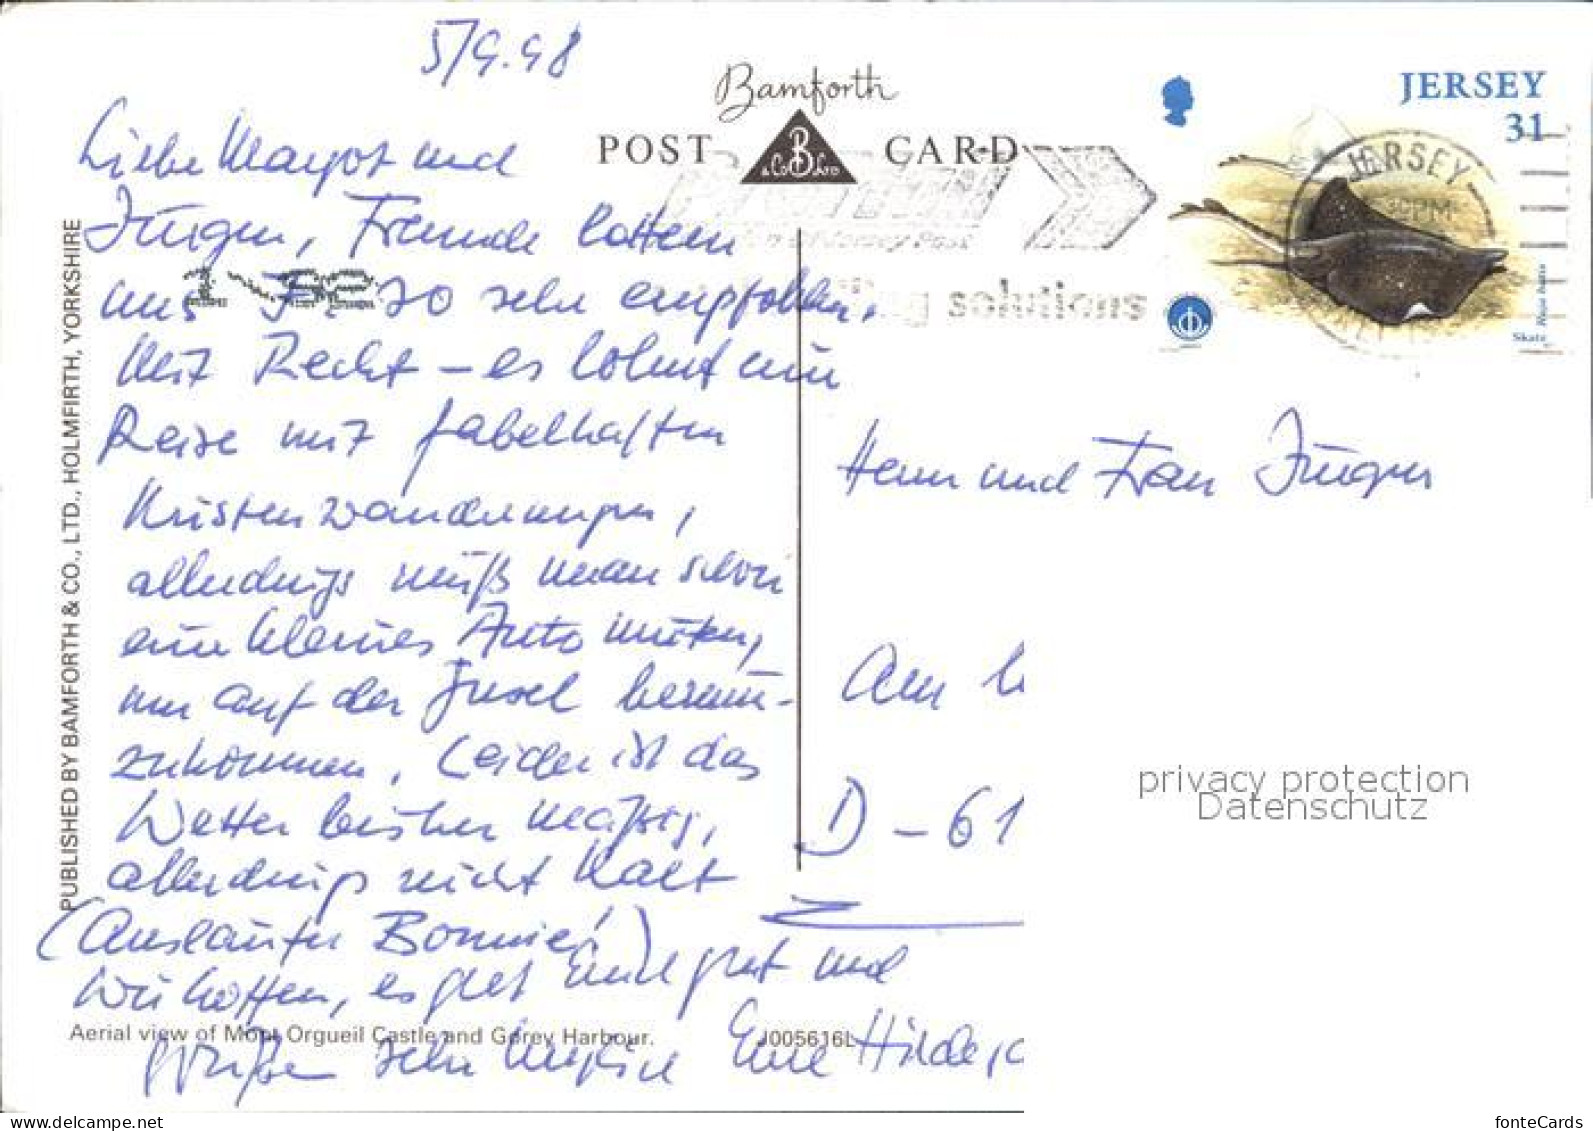 5/9.98
Liebe Margot und
Jürgen, Freunde hatten
uns so sehr empfohlen,
Mit Recht – es lohnt eine
Reise mit fabelhaften
Küstenwanderungen,
allerdings muß man schon
ein kleines Auto mieten,
um auf der Insel herum-
zukommen. Leider ist das
Wetter bisher mäßig,
allerdings nicht kalt
(Ausläufer Bonnie!)
Wir hoffen, es geht Euch gut und
grüßen sehr herzlich Eure Hilde
PUBLISHED BY BAMFORTH & CO., LTD., HOLMFIRTH, YORKSHIRE
Aerial view of Mont Orgueil Castle and Gorey Harbour.
J005616L
Bamforth
POST CARD
B
& Co Ltd
solutions
JERSEY
31
JERSEY
Skate
Herrn und Frau Jürgen
Am
D-61
privacy protection
Datenschutz
fonteCards